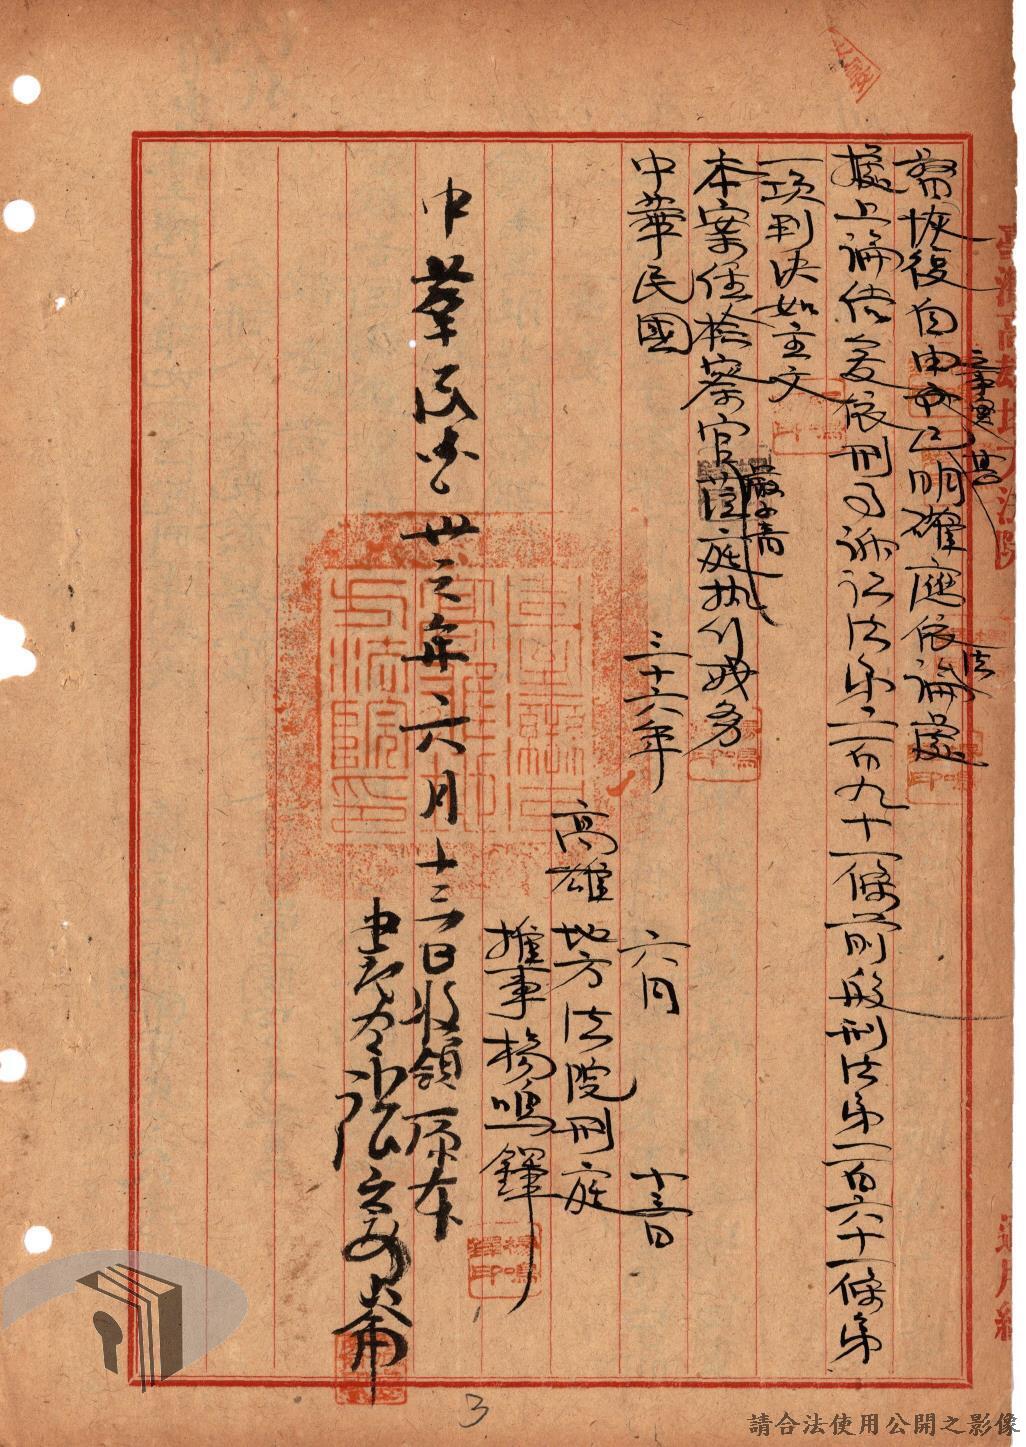 恢復自由事實已明確應依法論處
據上論結爰依刑事訴訟法第二百九十一條前段刑法第一百六十一條第
一項判決如主文
本案經檢察官蒞庭執行職務
中華民國三十六年六月十三日
高雄地方法院刑庭
推事楊鳴鐸
中華民國卅六年六月十三日收領原本
書記官
臺灣高雄地方法院
3
請合法使用公開之影像